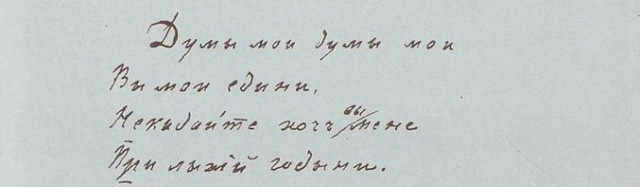 Думы мои думы мои
Ви мои едини,
Некидайте хочъ вы мене
При лыхій годыни.